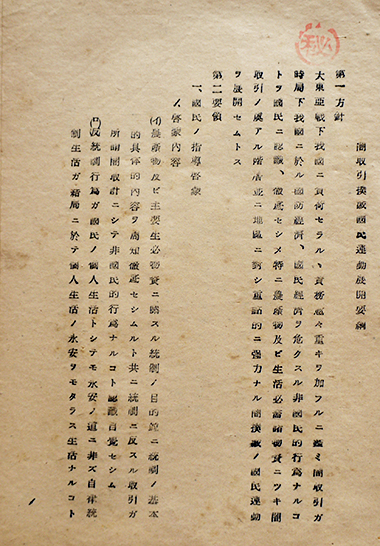 秘
闇取引撲滅國民運動展開要綱
第一方針
大東亜戦下我國ニ負荷セラルヽ責務愈々重キヲ加フルニ鑑ミ闇取引ガ
時局下我國ニ於ル國防經濟、國民經濟ヲ危クスル非國民的行爲ナルコ
トヲ國民ニ認識、徹底セシメ特ニ農産物及ビ生活必需諸物資ニツキ闇
取引ノ虞アル階層並ニ地區ニ對シ重點的ニ強力ナル闇撲滅ノ國民運動
ヲ展開セムトス
第二要領
一、國民ノ指導啓蒙
1、啓蒙内容
(イ)農産物及ビ主要生必物資ニ關スル統制ノ目的竝ニ統制ノ基本
的具体的内容ヲ周知徹底セシムルト共ニ統制ニ反スル取引ガ
所謂闇取引ニシテ非國民的行爲ナルコト認識自覺セシム
(ロ)反統制行爲ガ國民ノ個人生活トシテモ永安ノ道ニ非ズ自律統
制生活ガ結局ニ於テ個人生活ノ永安ヲモタラス生活ナルコト